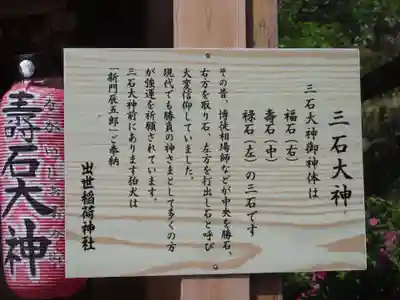 三石大神
三石大神御神体は
福石（右）
壽石（中）
禄石（左）の三石です
その昔、博徒相場師などが中央を勝石、
右方を取り石、左方を打出し石と呼び
大変信仰していました。
現代でも勝負の神さまとして多くの方
が強運を祈願されています。
三石大神前にあります狛犬は
「新門辰五郎」ご奉納
出世稲荷神社
壽石大神